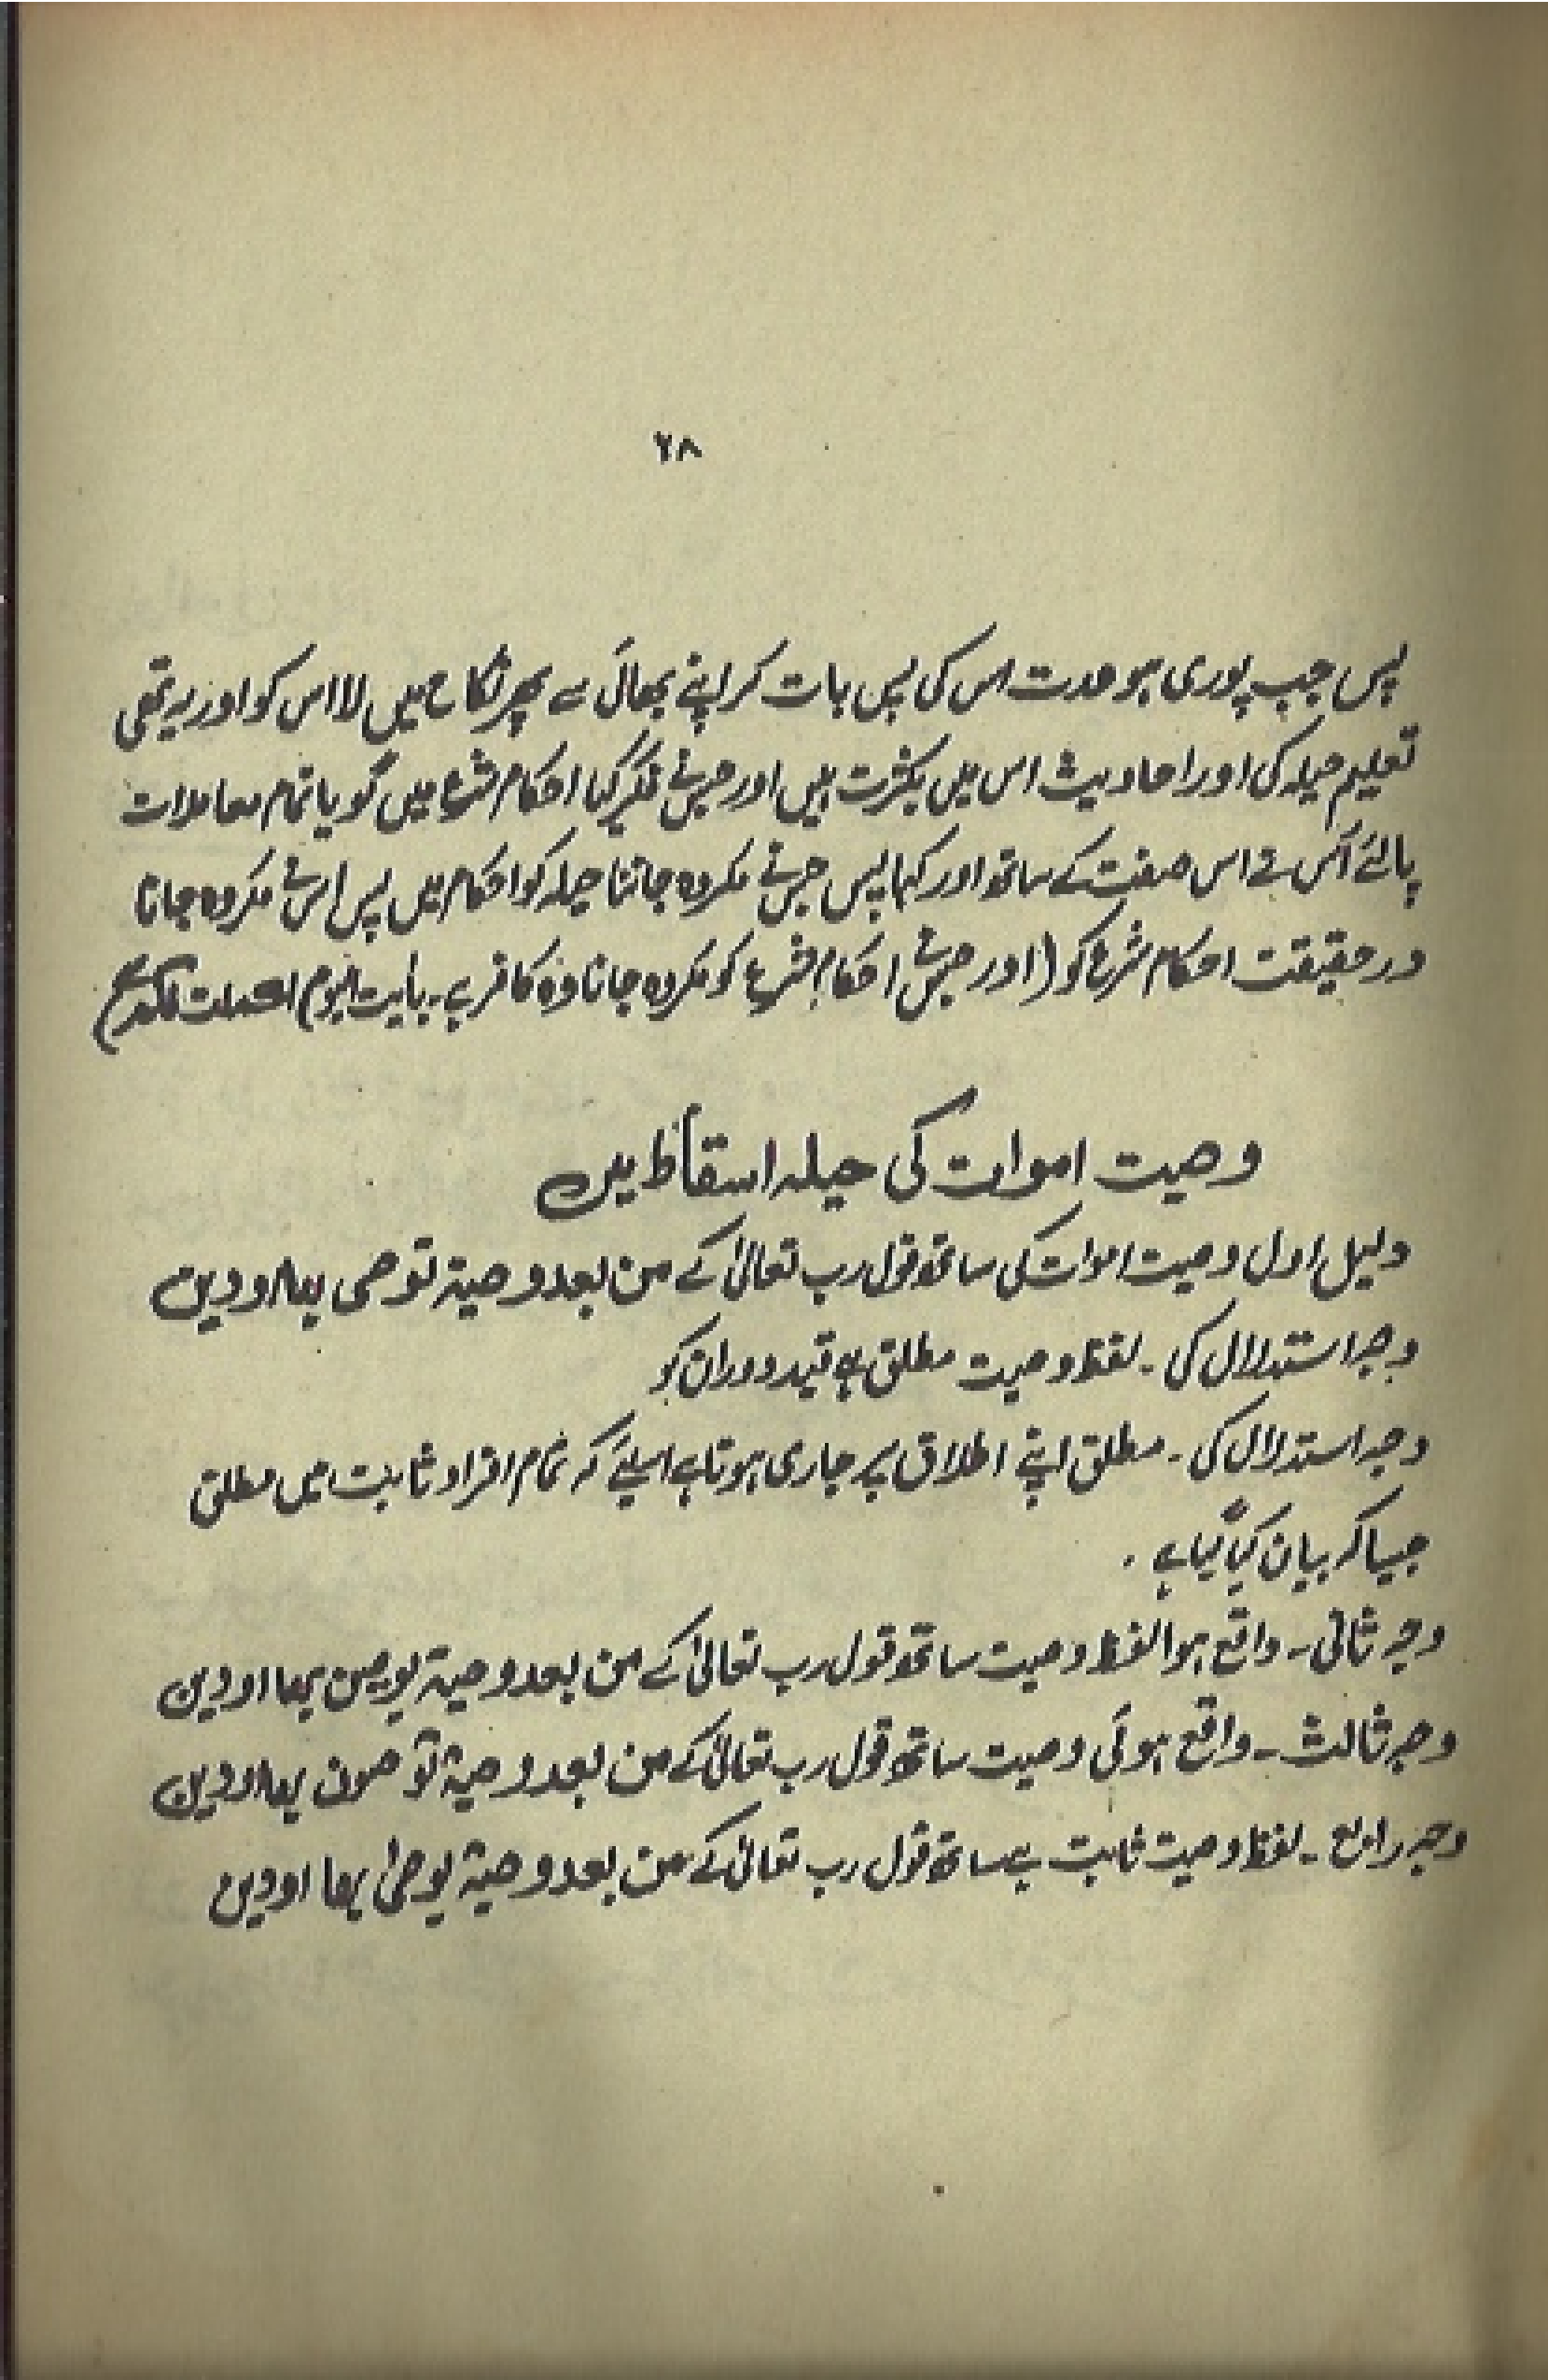 ۲۸
پس جب پوری ہو عدت اس کی پس بات کر اپنے بھائی سے پھر نکاح میں لا اس کو اور یہ تھی
تعلیم حیلہ کی اور احادیث اس میں بکثرت ہیں اور جس نے فکر کیا احکام شرع میں گویا تمام معاملات
پائے اس نے اس صفت کے ساتھ اور کہا پس جس نے مکروہ جانا حیلہ کو احکام میں پس اس نے مکروہ جانا
در حقیقت احکام شرع کو (اور جس نے احکام شرع کو مکروہ جانا وہ کافر ہے۔ بایت الیوم اکملت لکم
وصیت اموات کی حیلہ اسقاط میں
دلیل اول وصیت اموات کی ساتھ قول رب تعالیٰ کے من بعد وصیۃ توصی بھا او دین
وجہ استدلال کی۔ لفظ وصیت مطلق ہے قید دوران کو
وجہ استدلال کی۔ مطلق اپنے اطلاق پر جاری ہوتا ہے اسلئے کہ تمام افراد ثابت ہیں مطلق
جیسا کہ بیان کیا گیا ہے۔
وجہ ثانی۔ واقع ہوا لفظ وصیت ساتھ قول رب تعالیٰ کے من بعد وصیۃ یوصین بھا او دین
وجہ ثالث۔ واقع ہوئی وصیت ساتھ قول رب تعالیٰ کے من بعد وصیۃ توصون بھا او دین
وجہ رابع۔ لفظ وصیت ثابت ہے ساتھ قول رب تعالیٰ کے من بعد وصیۃ یوصیٰ بھا او دین